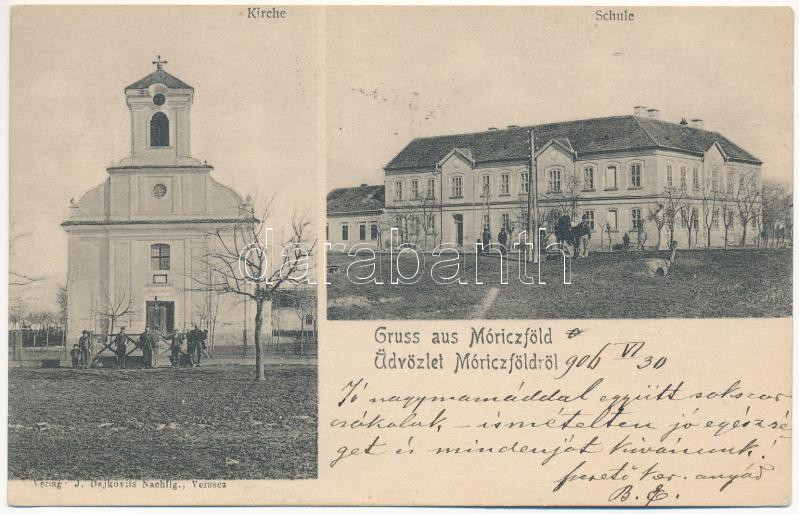 Kirche
Schule
darabanth
Gruss aus Móriczföld
Üdvözlet Móriczföldröl 906 VI 30
Jó nagymamáddal együtt sokszor
csókoluk, - ismételten jó egészsé
get és mindenjót kivánunk!
szerető ker. anyád
B. E.
Verlag J. Dajkovits Nachflg., Versecz